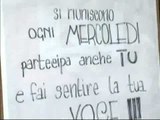 si riuniscono
OGNI MERCOLEDI
partecipa anche TU
e fai sentire la tua
VOCE !!!